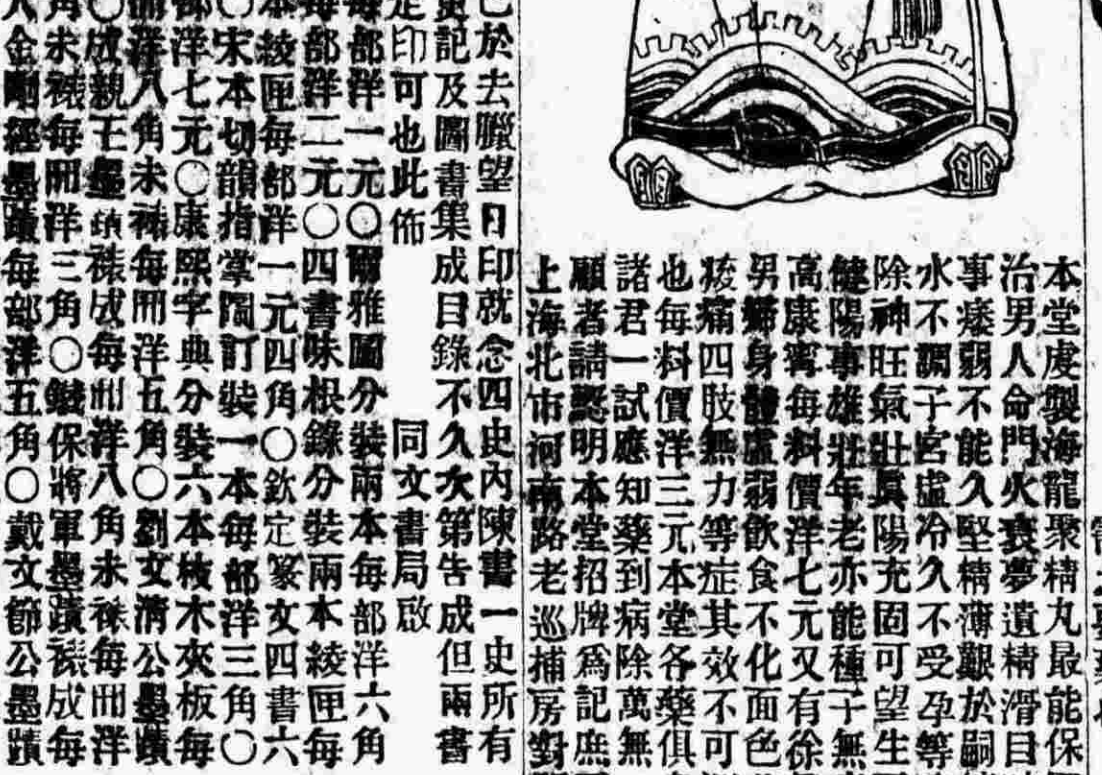 本堂虔製海龍聚精丸最能保
治男人命門火衰夢遺精滑日
事痿弱不能久堅精薄艱於嗣
水不調子宮虛冷久不受孕等
除神旺氣壯眞陽充固可望生
健陽事雄壯年老亦能種子無
高康寗每料價洋七元又有徐
男婦身體虛弱飲食不化面色
痠痛四肢無力等症其效不可
也每料價洋三元本堂各藥俱
諸君一試應知藥到病除萬無
顧者請認明本堂招牌爲記庶
上海北市河南路老巡捕房對
已於去臘望日印就念四史內陳書一史所有
記及圖書集成目錄不久次第告成但兩書
定印可也此佈 同文書局啟
每部洋一元〇爾雅圖分裝兩本每部洋六角
每部洋二元〇四書味根錄分裝兩本綾匣每
本綾匣每部洋一元四角〇欽定篆文四書六
〇宋本切韻指掌圖訂裝一本每部洋三角〇
部洋七元〇康熙字典分裝六本枝木夾板每
洋八角未裱每冊洋五角〇劉文清公墨蹟
〇成親王墨蹟裱成每冊洋八角未裱每冊洋
角未裱每冊洋三角〇鐵保將軍墨蹟裱成每
金剛經墨蹟每部洋五角〇戴文節公墨蹟